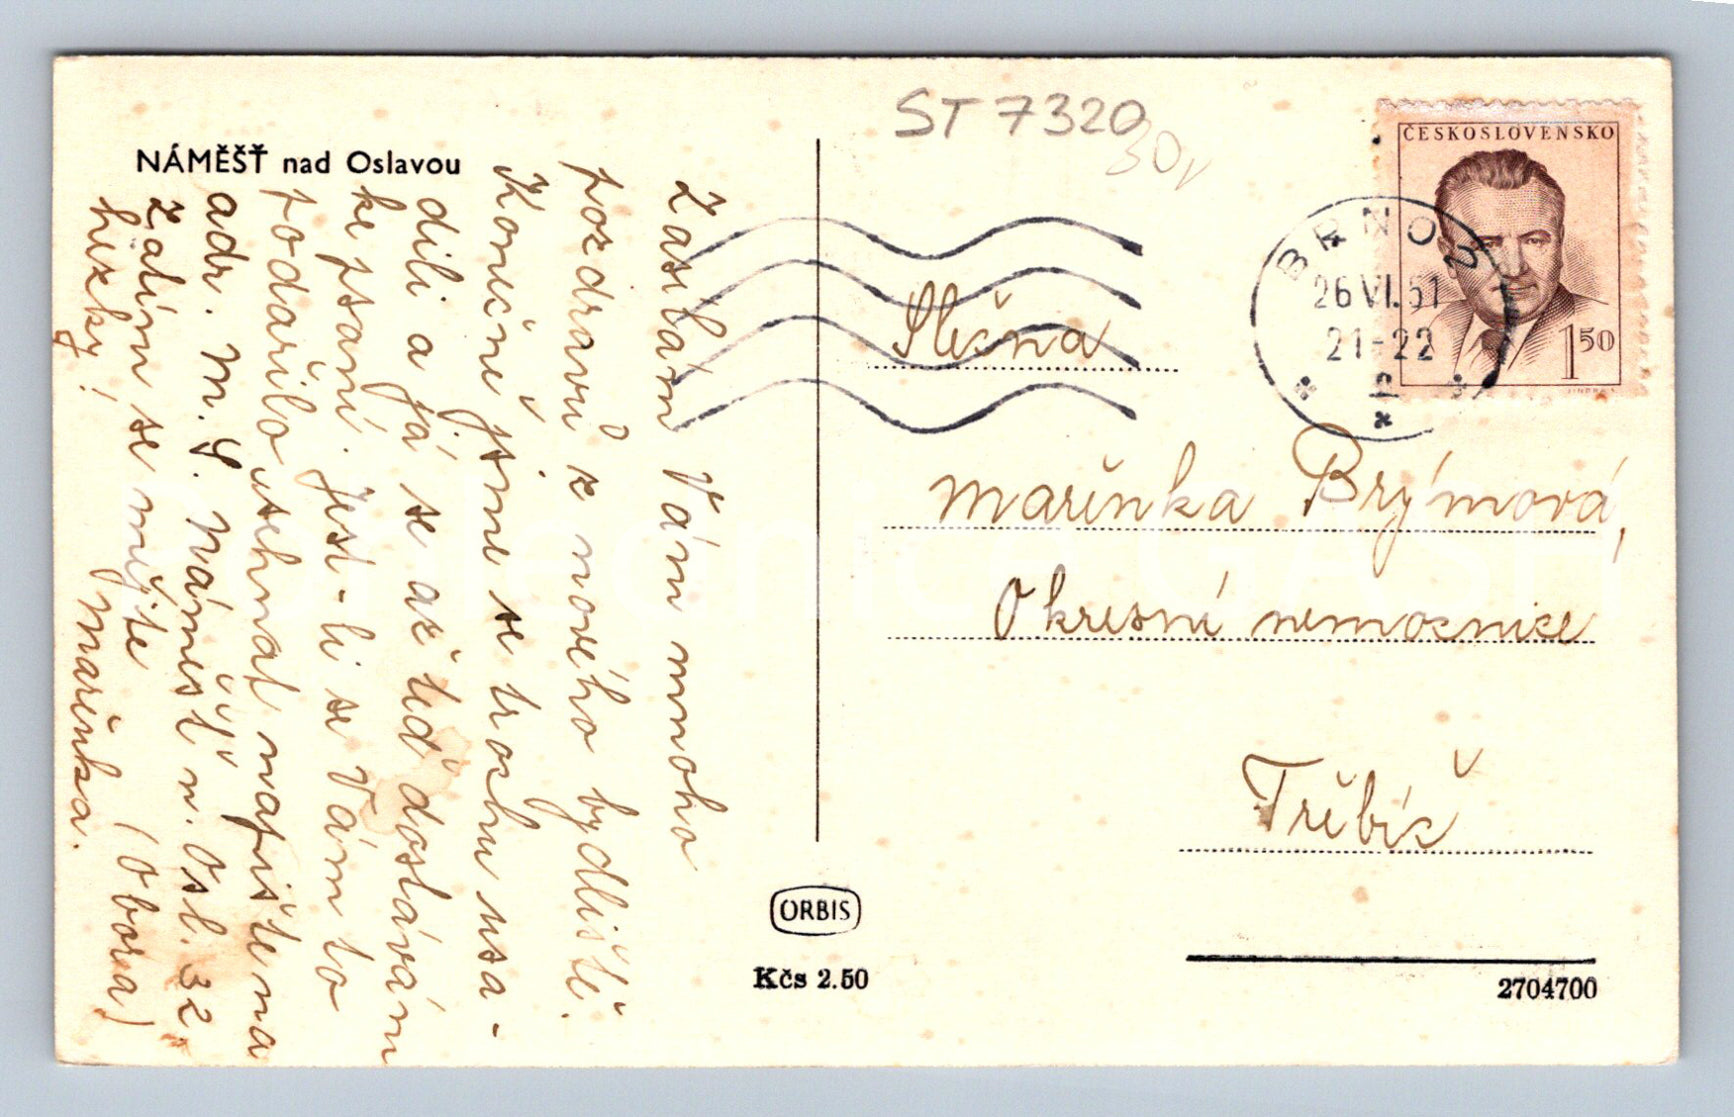 NÁMĚŠŤ nad Oslavou
Zasílám Vám mnoho
pozdravů z nového bydliště.
Konečně jsme se trochu usa-
dili a já se až teď dostávám
ke psaní. Jest-li se Vám to
podařilo usehnat napište na
adr. M. Š. Náměšť n. Osl. 32,
Zatím se mějte
hezky!
Mařenka. (Obora)
ST 7320
30,
ČESKOSLOVENSKO
1 50
BRNO 2
26 VI. 51
21-22
Slečna
Mařenka Brýmová,
Okresní nemocnice
Třebíč
ORBIS
Kčs 2.50
2704700